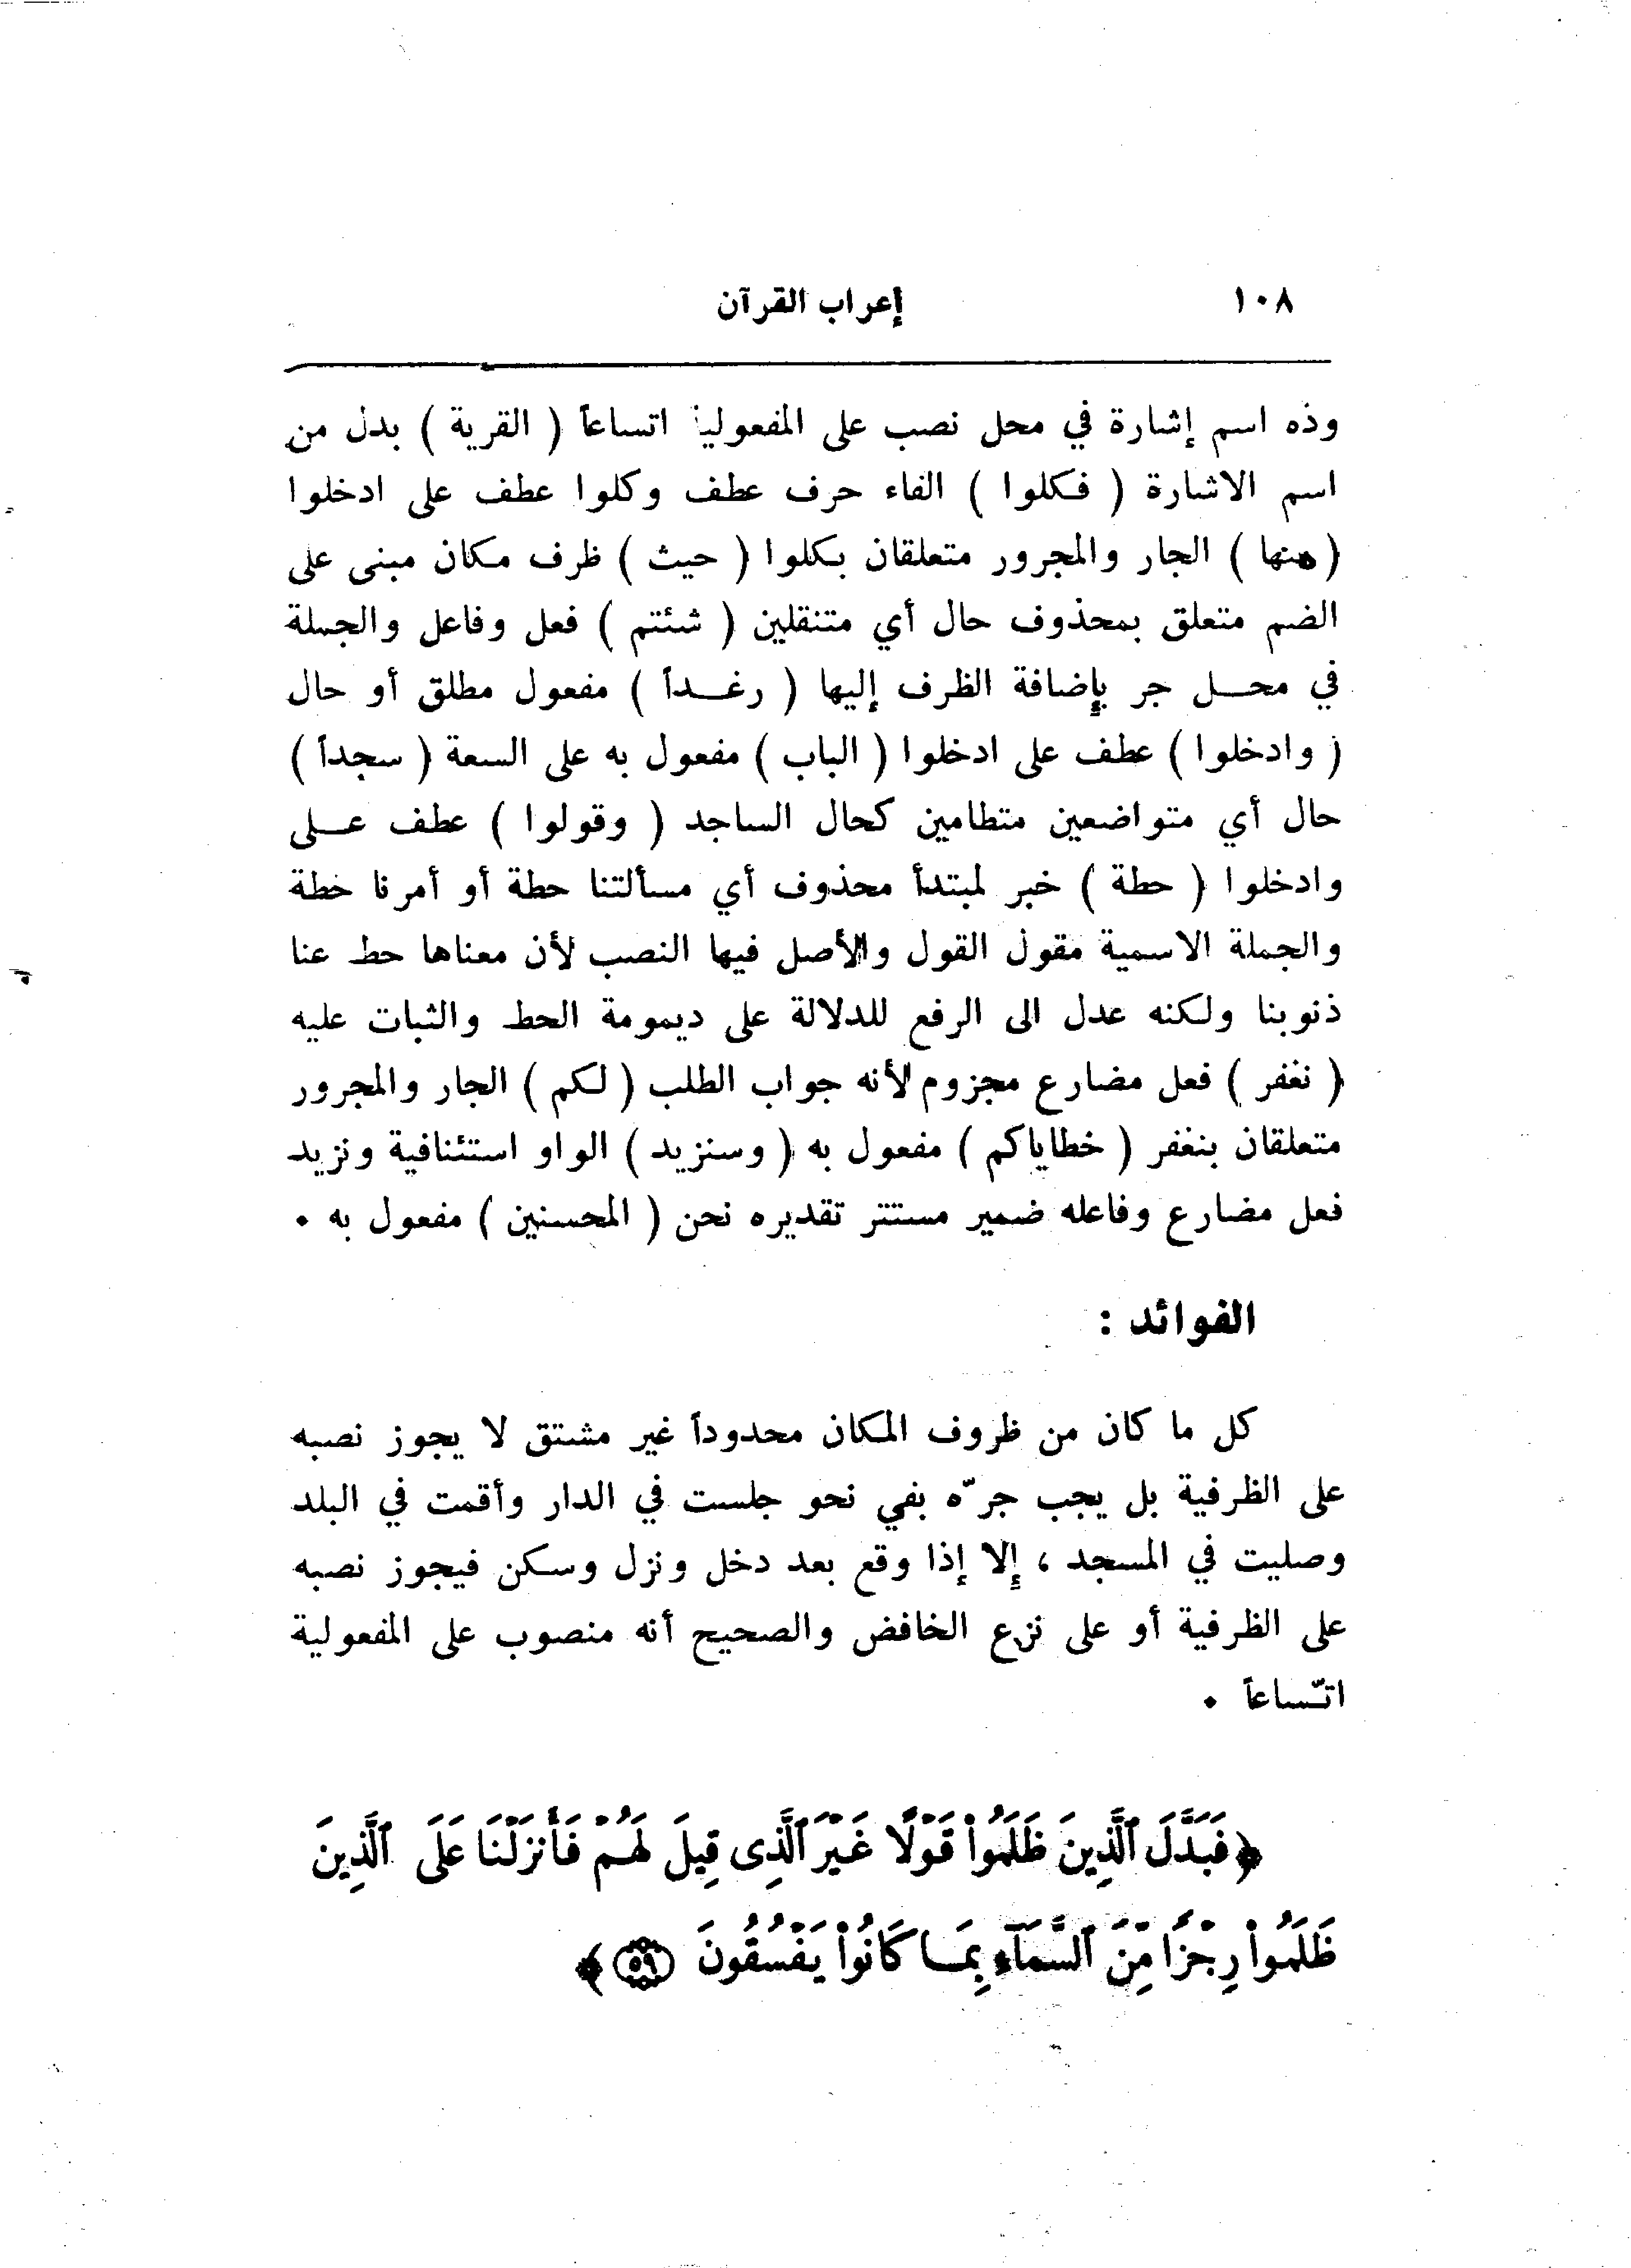 ١٠٨ إعراب القرآن
وذه اسم إشارة في محل نصب على المفعولية اتساعاً ( القرية ) بدل من
اسم الاشارة ( فكلوا ) الفاء حرف عطف وكلوا عطف على ادخلوا
( منها ) الجار والمجرور متعلقان بكلوا ( حيث ) ظرف مكان مبني على
الضم متعلق بمحذوف حال أي متنقلين ( شئتم ) فعل وفاعل والجملة
في محل جر بإضافة الظرف إليها ( رغداً ) مفعول مطلق أو حال
( وادخلوا ) عطف على ادخلوا ( الباب ) مفعول به على السعة ( سجداً )
حال أي متواضعين متطامين كحال الساجد ( وقولوا ) عطف على
وادخلوا ( حطة ) خبر لمبتدأ محذوف أي مسألتنا حطة أو أمرنا خطة
والجملة الاسمية مقول القول والأصل فيها النصب لأن معناها حط عنا
ذنوبنا ولكنه عدل الى الرفع للدلالة على ديمومة الحط والثبات عليه
( نغفر ) فعل مضارع مجزوم لأنه جواب الطلب ( لكم ) الجار والمجرور
متعلقان بنغفر ( خطاياكم ) مفعول به ( وسنزيد ) الواو استئنافية ونزيد
فعل مضارع وفاعله ضمير مستتر تقديره نحن ( المحسنين ) مفعول به .
الفوائد :
كل ما كان من ظروف المكان محدوداً غير مشتق لا يجوز نصبه
على الظرفية بل يجب جرّه بفي نحو جلست في الدار وأقمت في البلد
وصليت في المسجد ، إلا إذا وقع بعد دخل ونزل وسكن فيجوز نصبه
على الظرفية أو على نزع الخافض والصحيح أنه منصوب على المفعولية
اتّساعاً .
﴿فَبَدَّلَ ٱلَّذِينَ ظَلَمُواْ قَوْلًا غَيْرَ ٱلَّذِى قِيلَ لَهُمْ فَأَنزَلْنَا عَلَى ٱلَّذِينَ
ظَلَمُواْ رِجْزًا مِّنَ ٱلسَّمَآءِ بِمَا كَانُواْ يَفْسُقُونَ ٥٩﴾